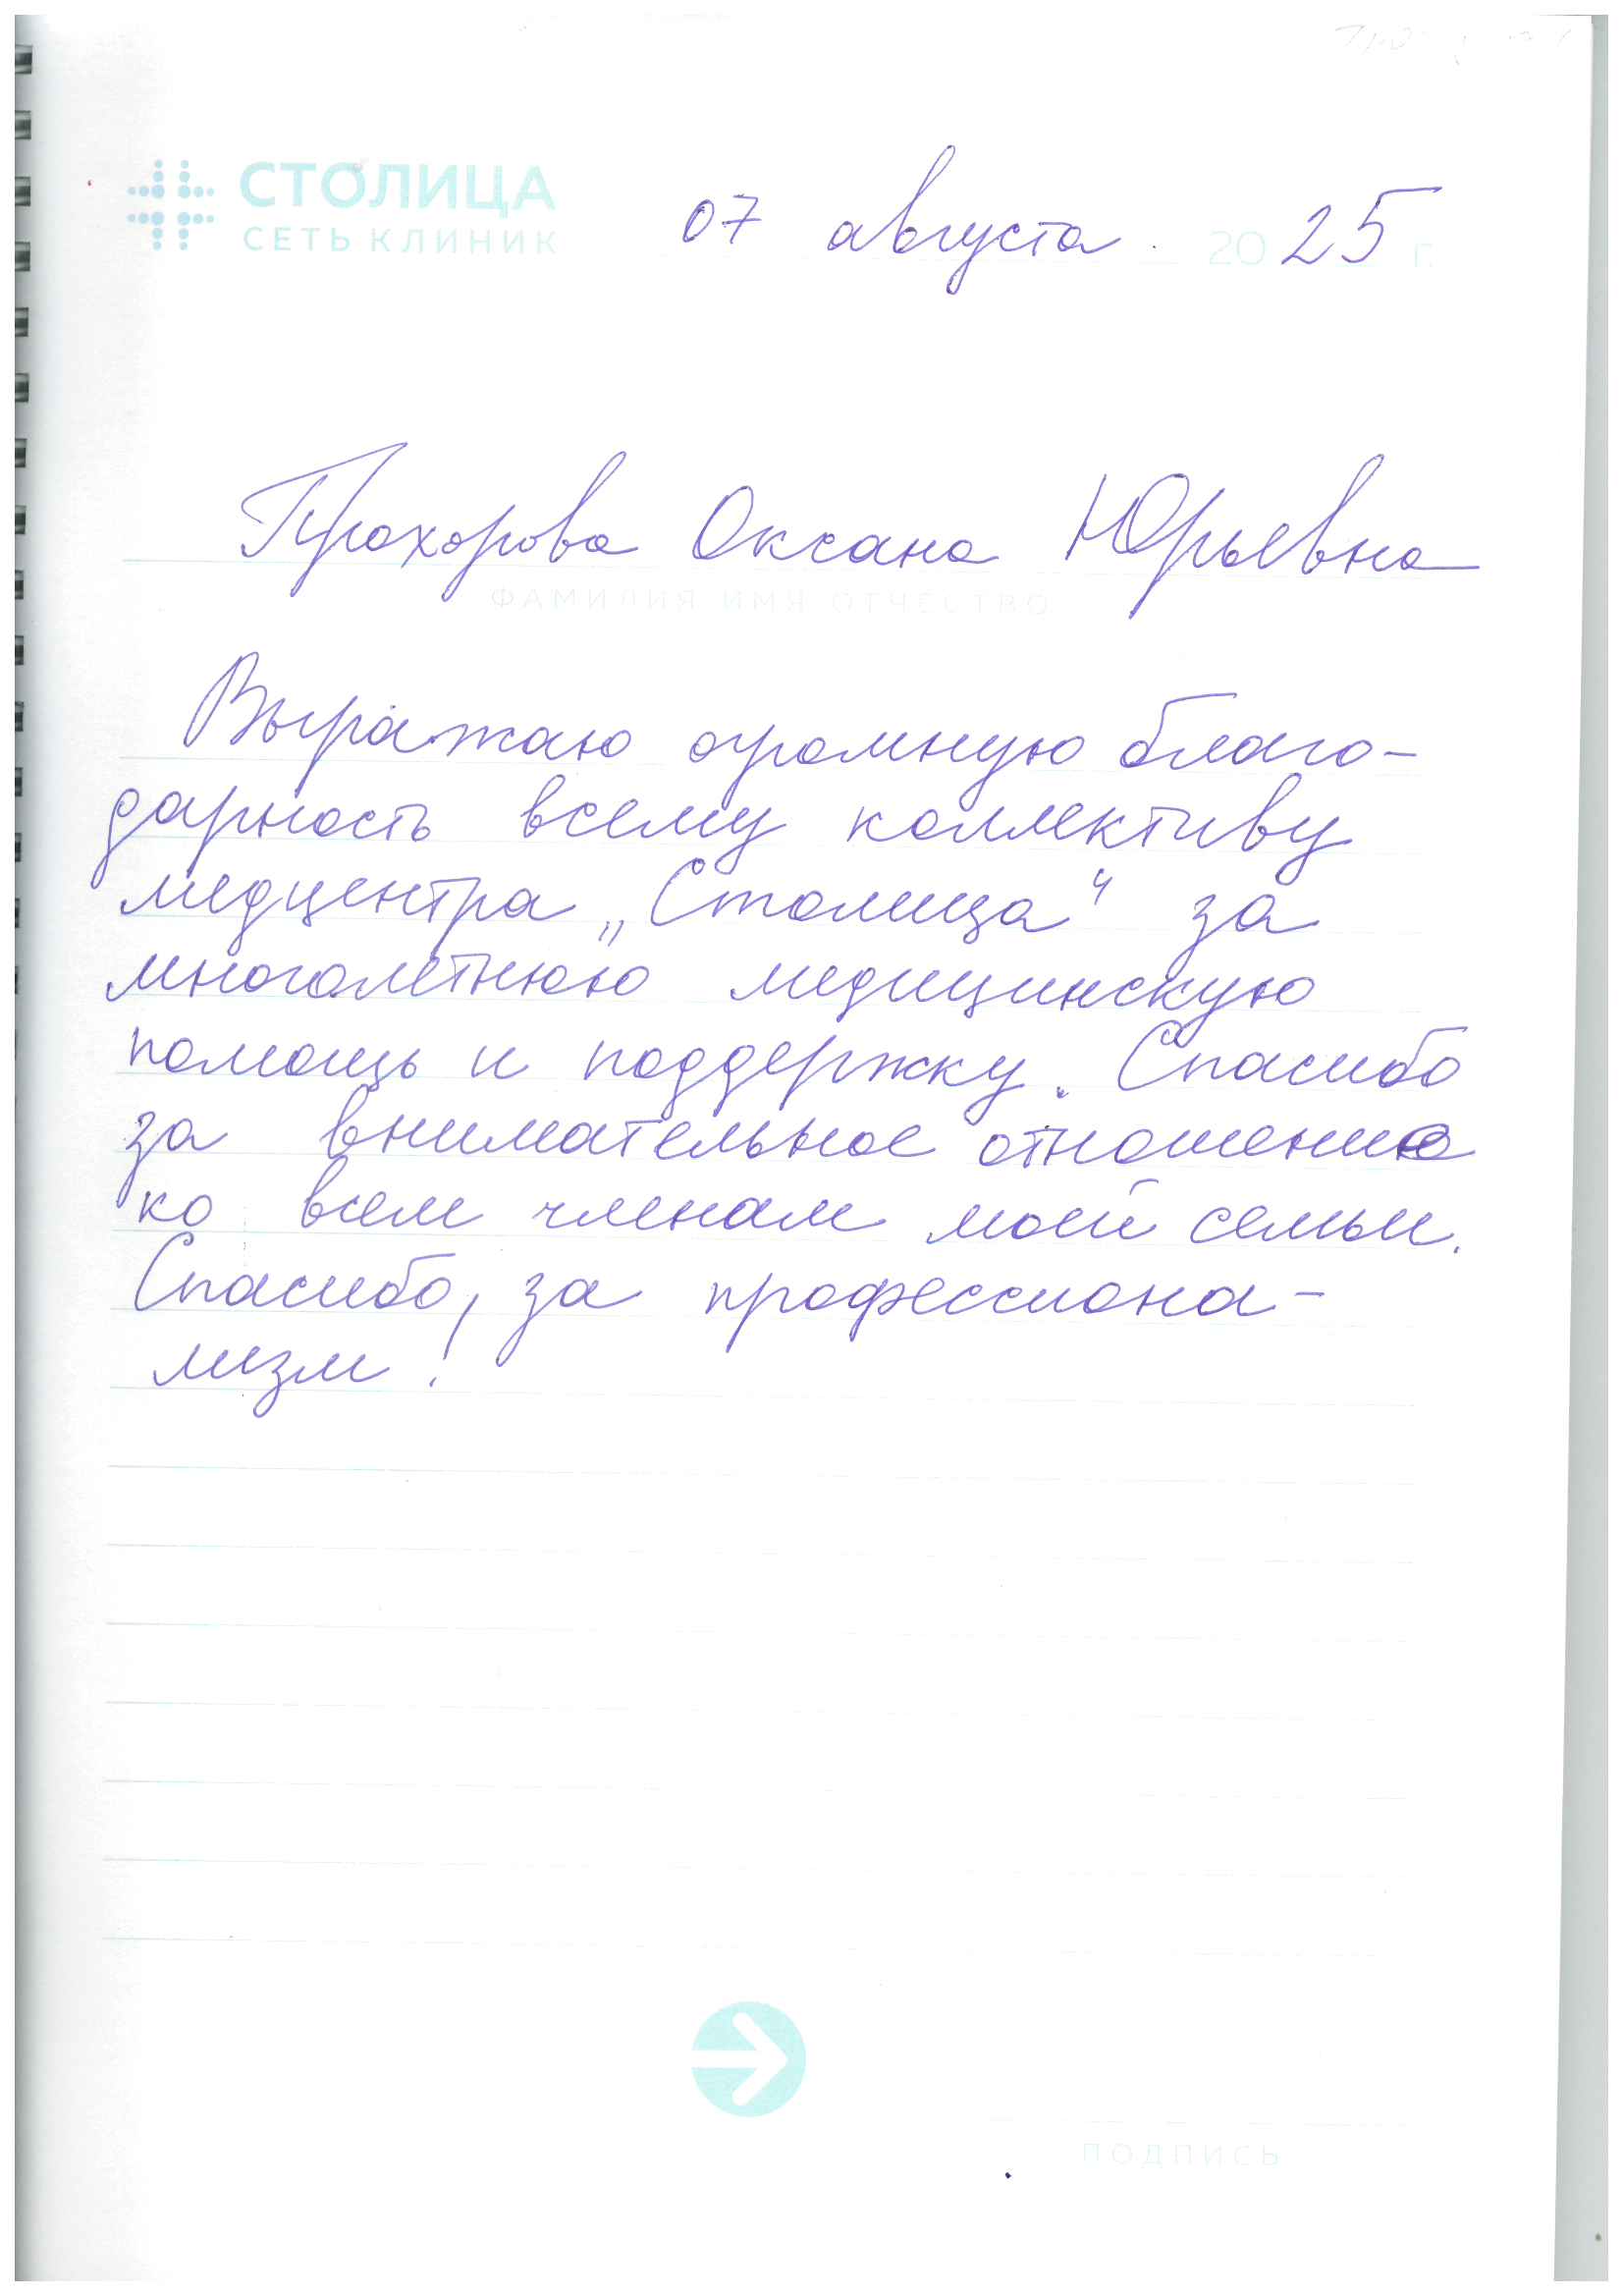 СТОЛИЦА
СЕТЬ КЛИНИК
07 августа 2025 г.
Прохорова Оксана Юрьевна
ФАМИЛИЯ ИМЯ ОТЧЕСТВО
Выражаю огромную благо-
дарность всему коллективу
медцентра „Столица“ за
многолетнюю медицинскую
помощь и поддержку. Спасибо
за внимательное отношение
ко всем членам моей семьи.
Спасибо, за профессиона-
лизм!
ПОДПИСЬ